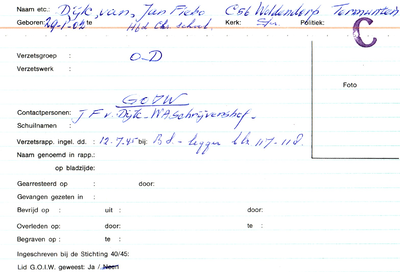 Naam etc.: Dijk, van, Jan Freko C56 Woldendorp Termunten
Geboren 29-1-02 te Hfd Chr. school. Kerk: Politiek:
C
Verzetsgroep : O.D
Verzetswerk :
Foto
GOIW
Contactpersonen: J F v. Dijk - WA Schrijvershof.-
Schuilnamen :
Verzetsrapp. ingel. dd. : 12.7.45 bij: Bd.- legger blz 117-118.
Naam genoemd in rapp.:
op bladzijde:
Gearresteerd op : door:
Gevangen gezeten in :
Bevrijd op : uit : door:
Overleden op: door: te :
Begraven op : te :
Ingeschreven bij de Stichting 40/45:
Lid G.O.I.W. geweest: Ja / Neen